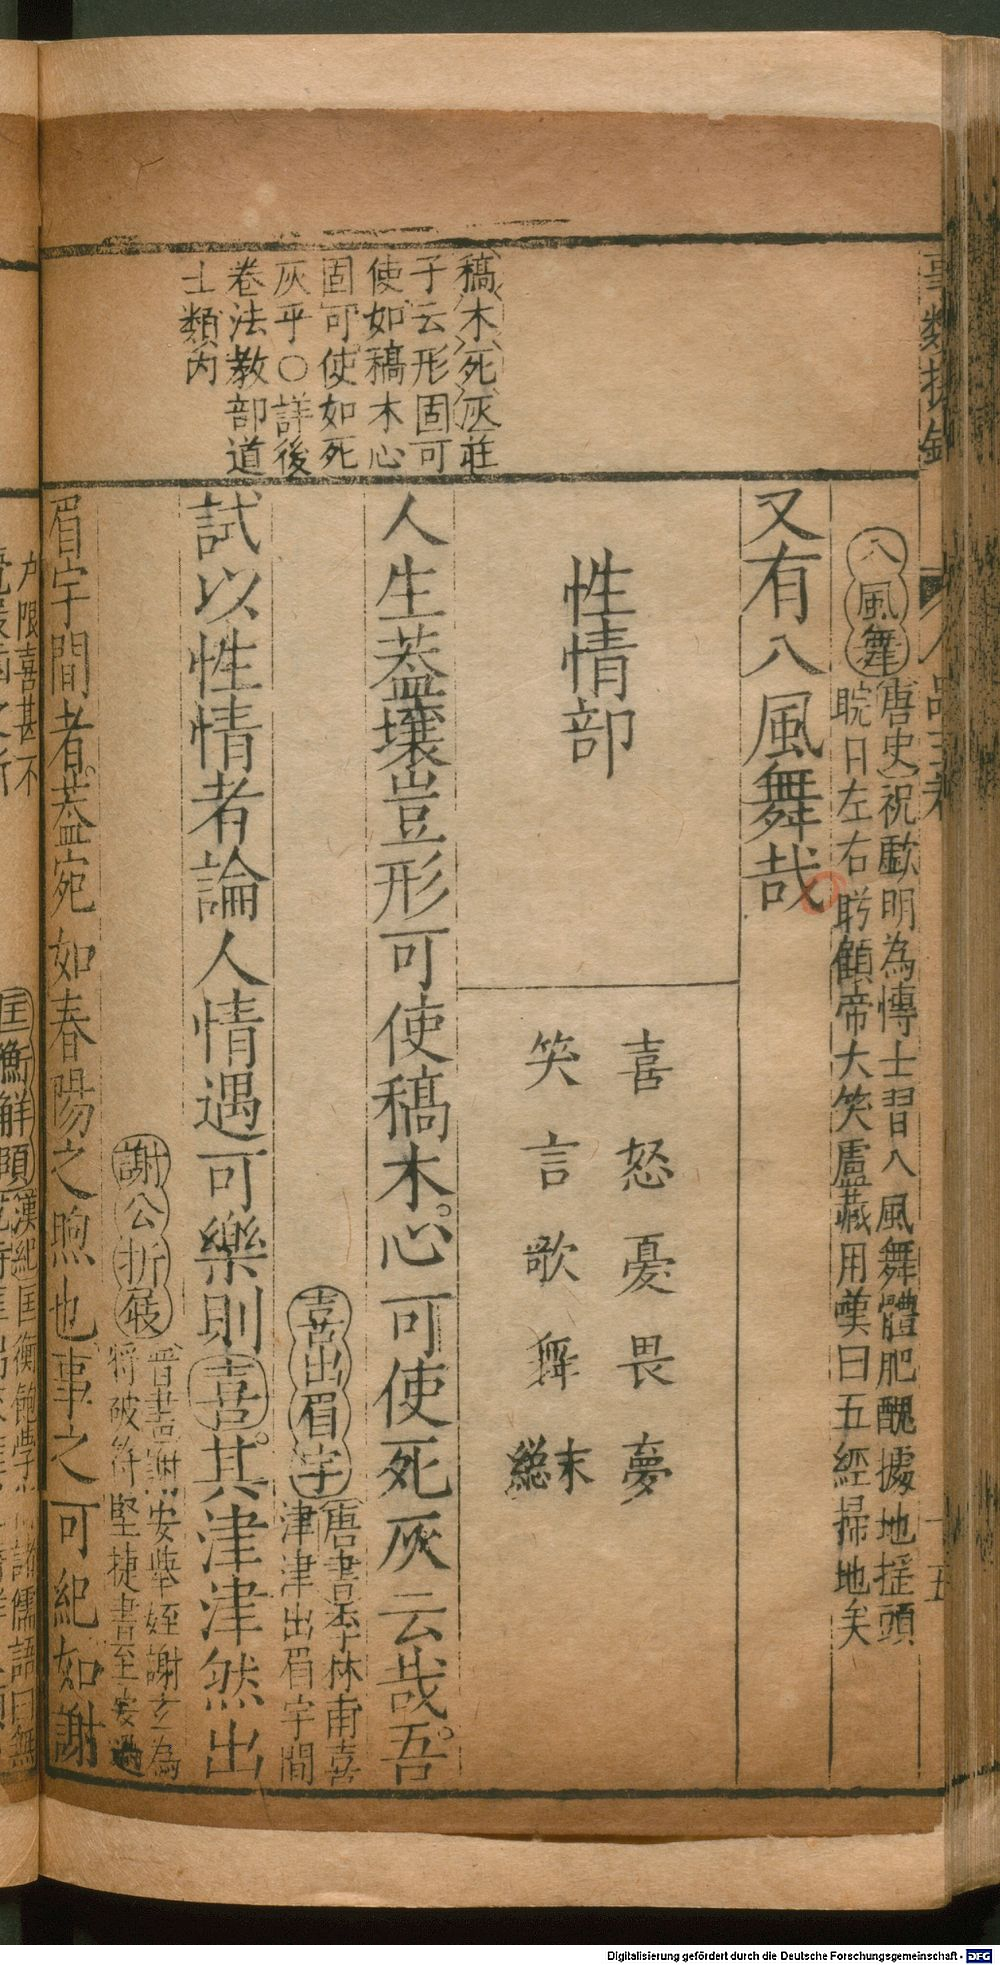 八風舞
唐史祝歜明為愽士習八風舞體肥醜據地揺頭
睆目左右盻顧帝大笑盧藏用嘆曰五經掃地矣
又有八風舞哉
性情部
喜怒憂畏夢
笑言歌舞
末總
稿木死灰莊
子云形固可
使如稿木心
固可使如死
灰乎○詳後
卷法教部道
士類内
人生蓋壤豈形可使稿木心可使死灰云哉吾
喜出眉宇
唐書李林甫喜
津津出眉宇間
試以性情者論人情遇可樂則喜其津津然出
謝公折屐
晉書謝安與姪謝玄為
將破符堅捷書至安過
眉宇間者蓋宛如春陽之煦也事之可紀如謝
户限喜甚不
匡衡解頤
漢紀匡衡
諸儒語曰無
Digitalisierung gefördert durch die Deutsche Forschungsgemeinschaft - DFG